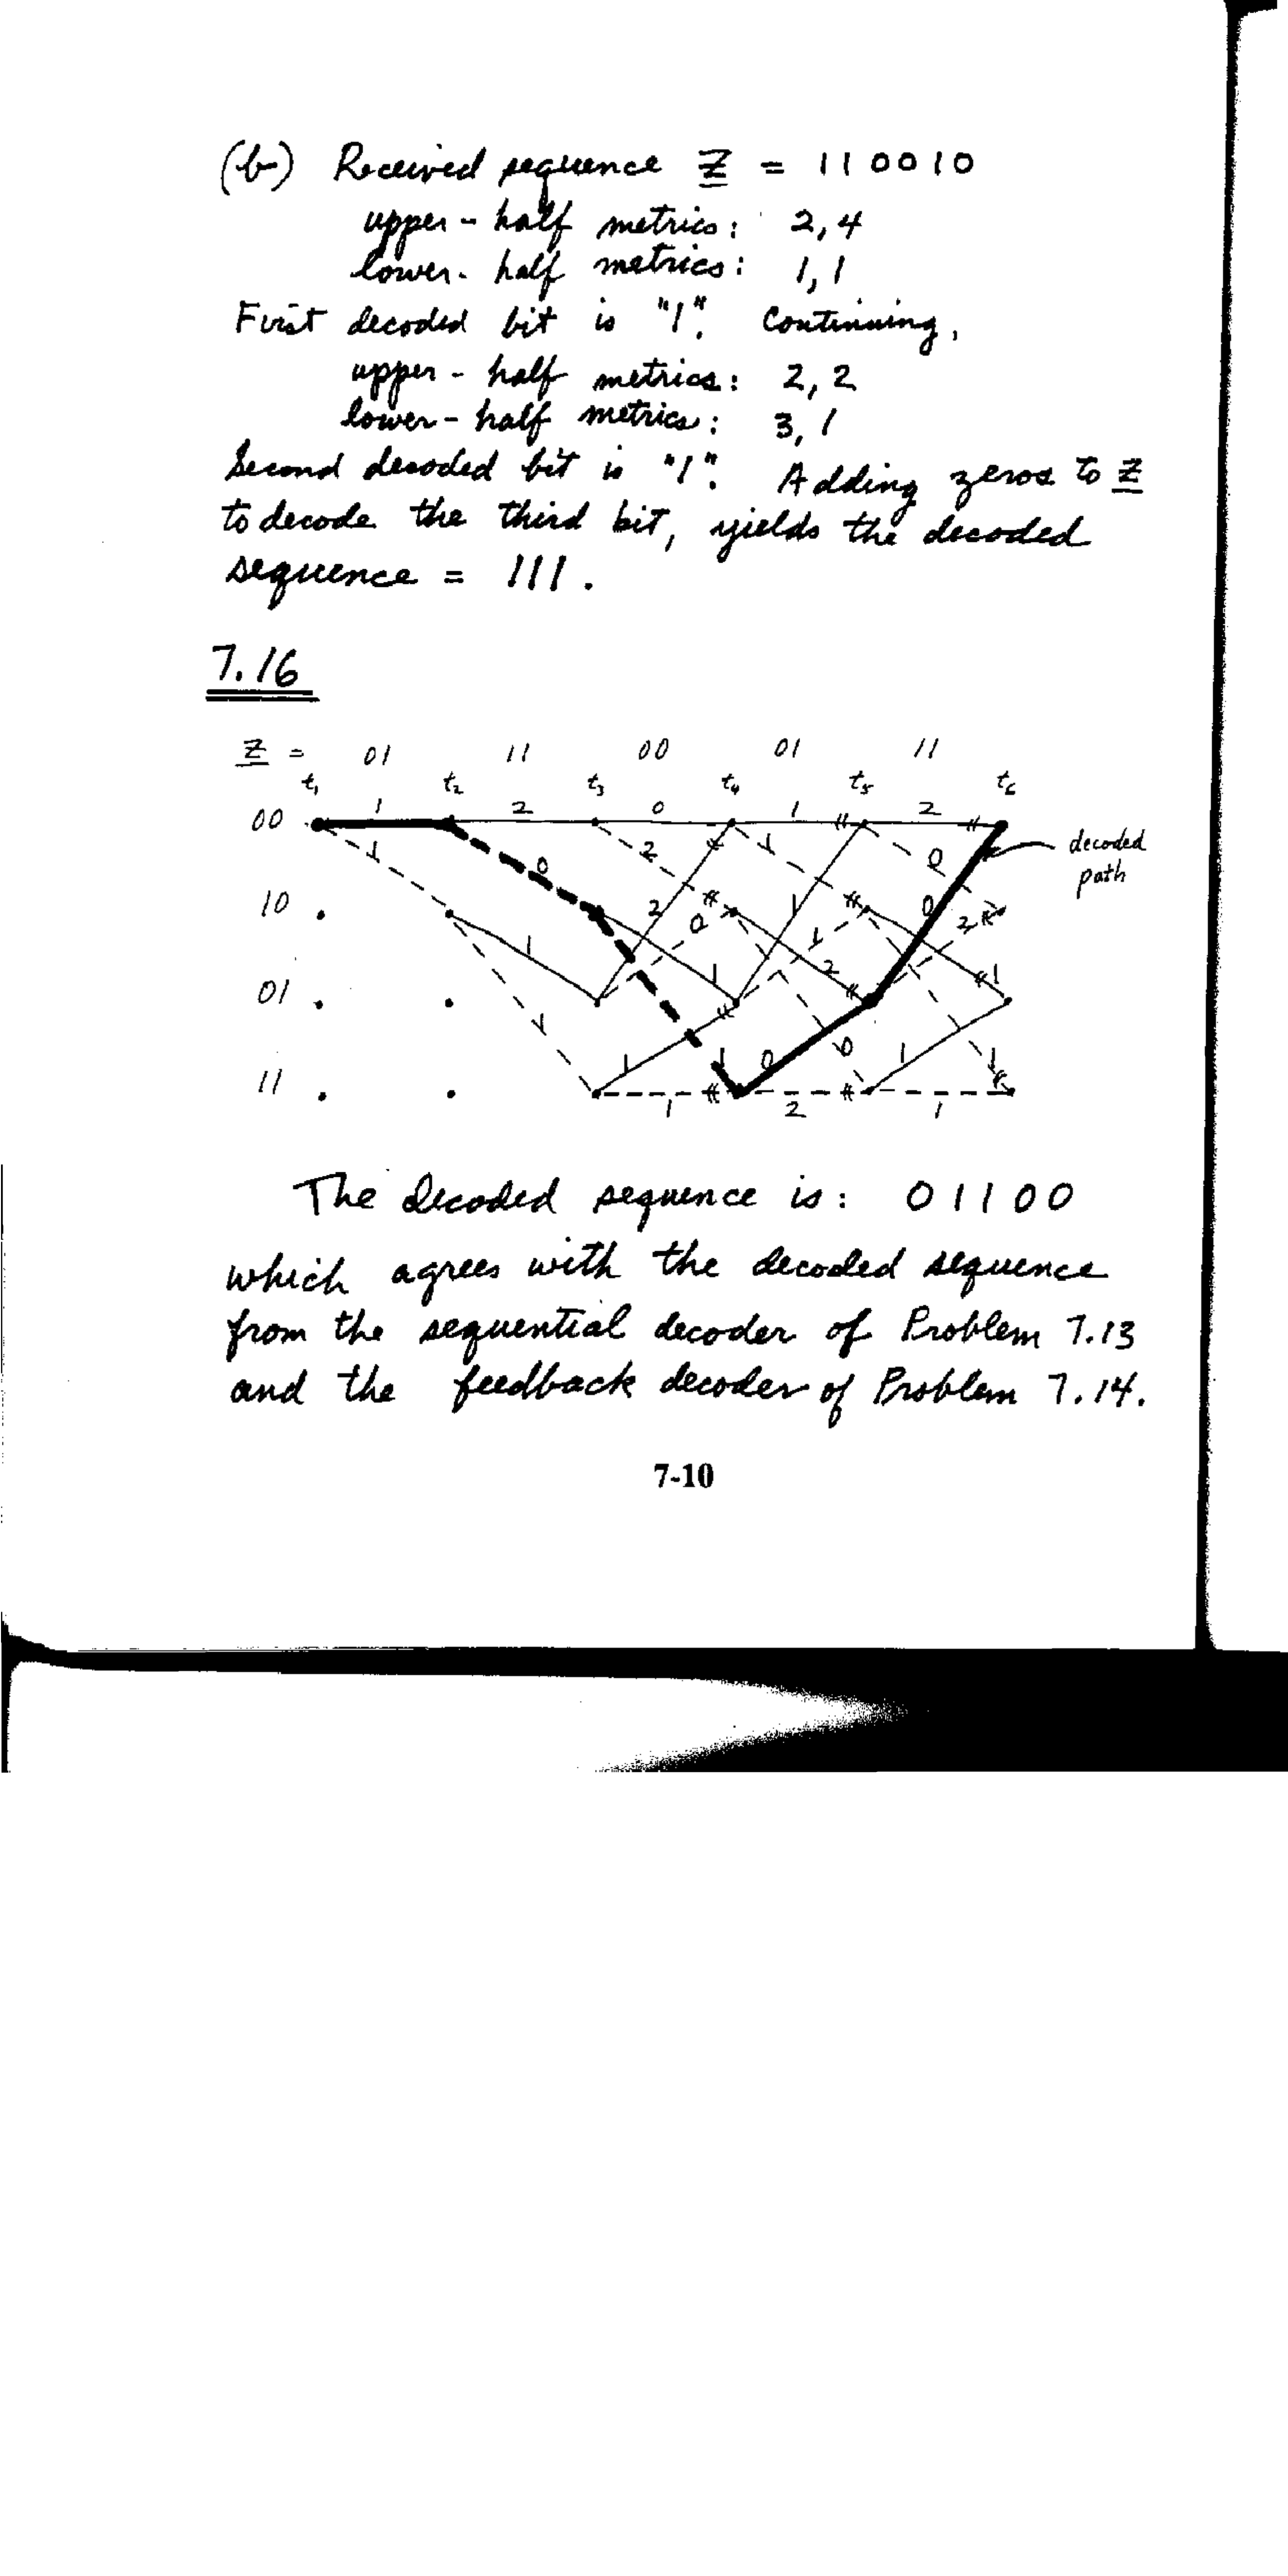 (b) Received sequence Z = 110010
upper-half metrics: 2,4
lower-half metrics: 1,1
First decoded bit is "1". Continuing,
upper-half metrics: 2,2
lower-half metrics: 3,1
Second decoded bit is "1". Adding zeros to Z
to decode the third bit, yields the decoded
sequence = 111.
7.16
Z = 01 11 00 01 11
t1 t2 t3 t4 t5 t6
1 2 0 1 2
00
1 0 2 1 0
decoded
path
10
2 0 1 0 2
1 1 1 2 1
01
1
1 1 0 0 1 1
11
1 2 1
The decoded sequence is: 01100
which agrees with the decoded sequence
from the sequential decoder of Problem 7.13
and the feedback decoder of Problem 7.14.
7-10